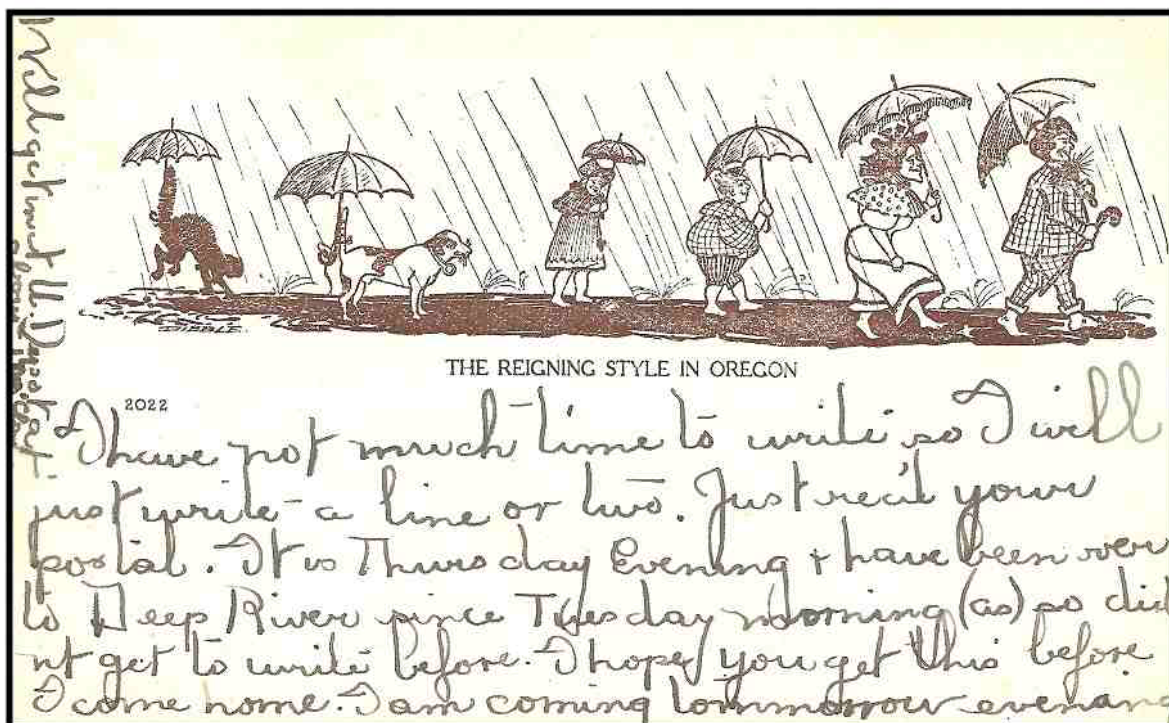 THE REIGNING STYLE IN OREGON
2022
I have not much time to write so I will
just write a line or two. Just rec'd your
postal. It is Thursday Evening + have been over
to Deep River since Tuesday morning (as) so did
nt get to write before. I hope you get this before
I come home. I am coming tommorrow evening
Will get in at U. Depot
DIBBLE.